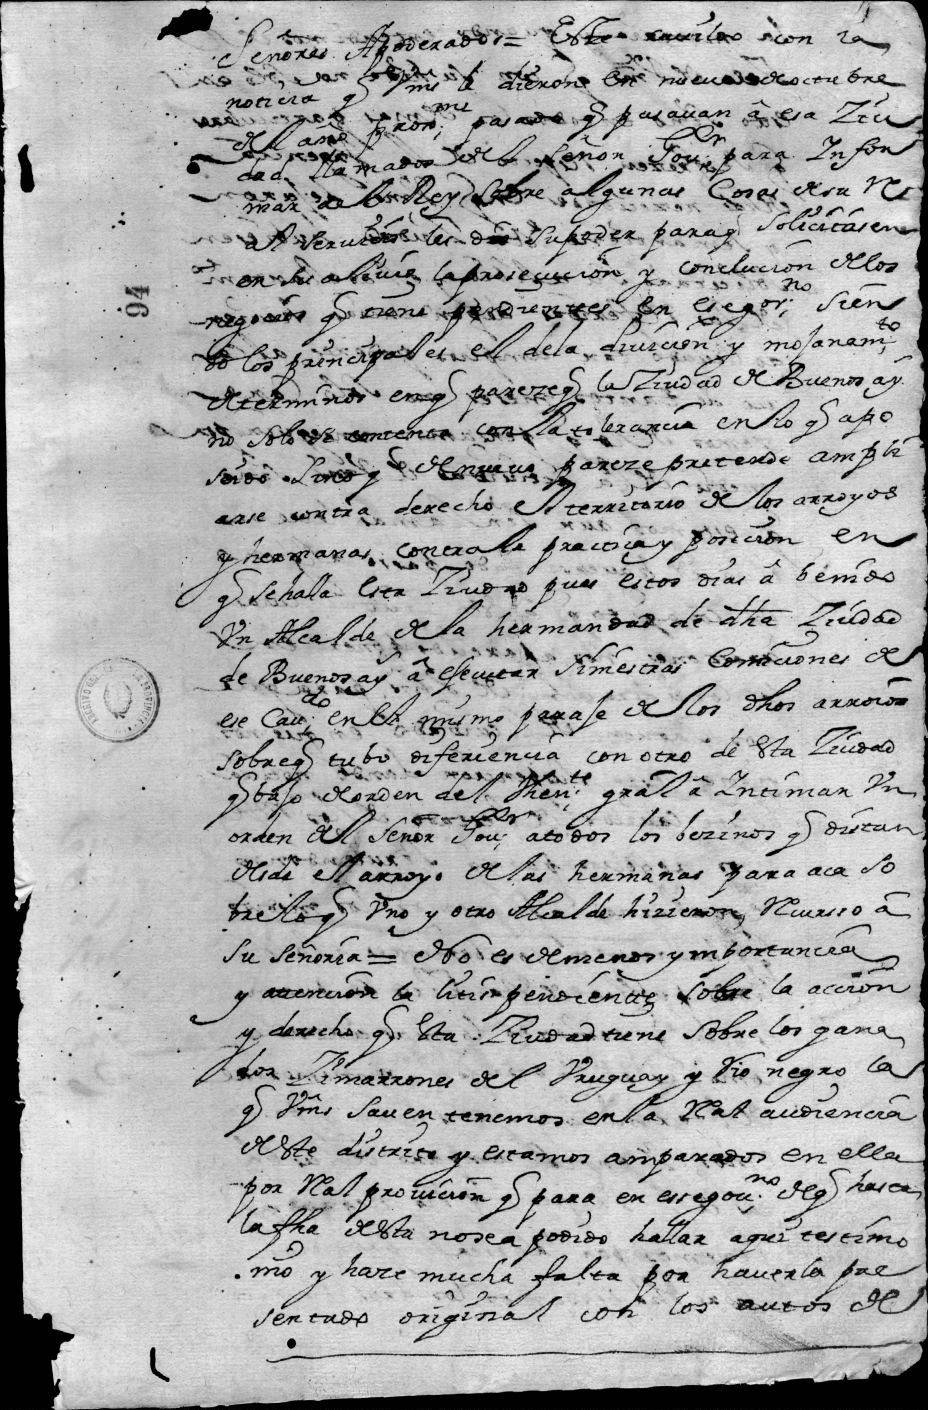 Señores Apoderados = Este cavildo con la
noticia q̃ Vms le dieron en nueve de octubre
del año prox.mo pasado q̃ pasavan â esa Ziu
dad llamados del Señor Gov.or para Infor
mar al Rey sobre algunas Cosas de su Rl
al servicio les dio su poder para q̃ solicitasen
en su alivio la prosecucion y conclucion de los
negocios q̃ tiene pendientes en ese gov.no sien
do los principales el de la divicion y mojonam.to
de terminos en q̃ pareze q̃ la Ziudad de Buenos ay.s
no solo se contenta con la tolerancia en lo q̃ a po
seido sino q̃ de nuevo pareze pretende ampli
arse contra derecho el territorio de los arroyos
y hermanas contra la practica y posicion en
q̃ se halla esta Ziudad pues estos dias â benido
Vn Alcalde de la hermandad de dha Ziudad
de Buenos ay.s â essecutar siniestras Comiciones de
ese Cav.do en el mismo paraje de los dhos arroios
sobre q̃ tubo diferiencia con otro de esta Ziudad
q̃ bajo de orden del Then.te gral â Intimar Vn
orden del Señor Gov.or a todos los bezinos q̃ distan
desde el arroyo de las hermanas para aca so
bre lo q̃ Vno y otro Alcalde hizieron Recurso â
su señoria = No es de menos ymportancia
y atencion la litis pendiente sobre la accion
y derecho q̃ esta Ziudad tiene sobre los gana
dos Zimarrones del Vruguay y Rio negro la
q̃ Vms saven tenemos en la Real audiencia
de este distrito y estamos amparados en ella
por Real provicion q̃ para en esse gov.no de q̃ hasta
la fha de esta no se a podido hallar aqui testimo
nio y haze mucha falta por haverla pre
sentado original con los autos de
94